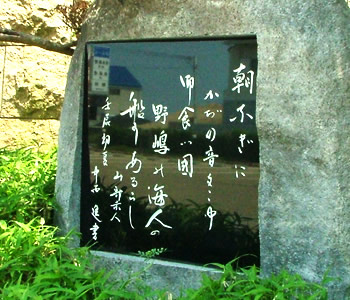 朝なぎに
かぢの音きこゆ
御食つ国
野嶋の海人の
船にしあるらし
山部赤人
中西進書